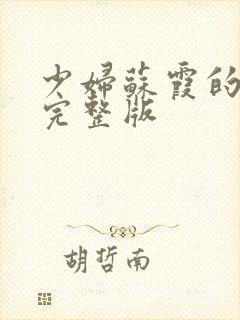 少婦蘇霞的
完整版
胡哲南